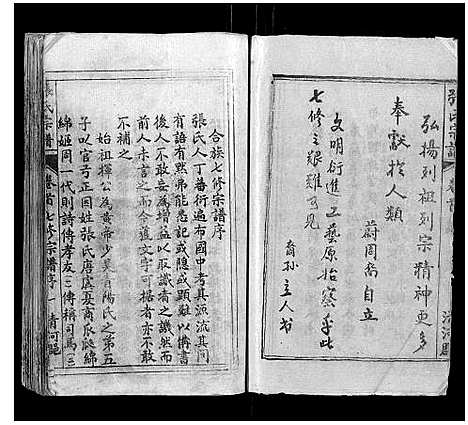 張氏宗譜
弘揚列祖列宗精神更多
奉獻於人類
蔚周喬自立
文明衍進工藝原始察乎此
七修之艱難可見
裔孫主人書
清河郡
合族七修宗譜序
張氏人丁蕃衍遍布國中考其源流其間
有語有默弗能悉記或隱或顯難以備書
後人不敢妄以為是者前人之識然而
前人未言之而今舊文字可據者亦不敢
不補之
始祖揮公為黃帝少昊青陽氏之第五
子以官弓正因姓張氏唐虞夏商瓜瓞綿
綿姬周一代則詩傳孝友(二)傳稱司馬(三)
張氏宗譜
卷首七修宗譜序
一
清河郡